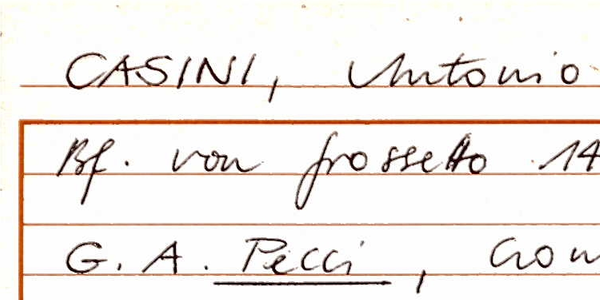 CASINI, Antonio
Bf. von Grosseto 14
G. A. Pecci,